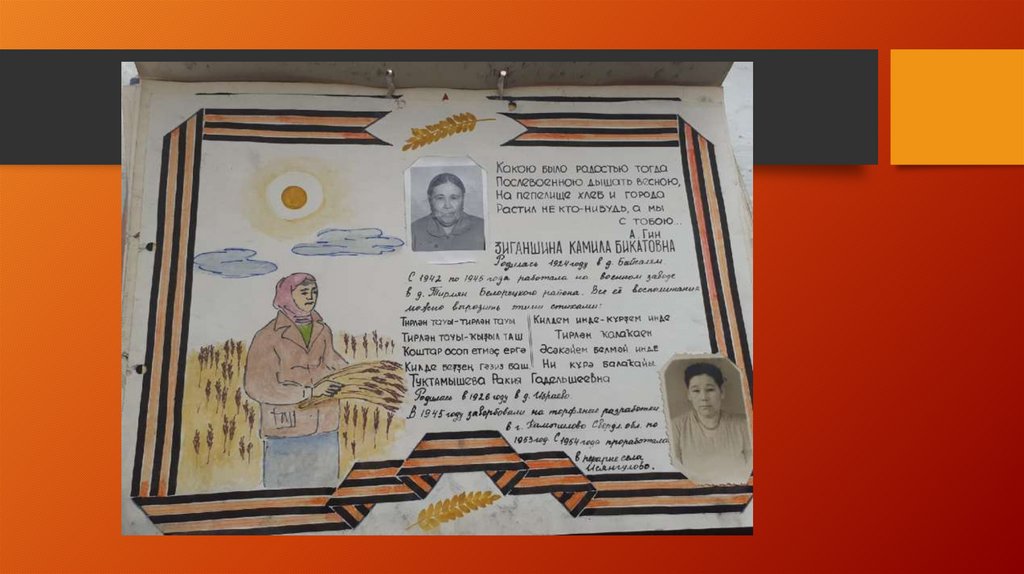 Какою было радостью тогда
Послевоенною дышать весною,
На пепелище хлеб и города
Растил не кто-нибудь, а мы
с тобою...
А. Гин
Зиганшина Камила Бикатовна
Родилась 1924 году в д.
С 1942 по 1945 года работала на военном заводе
в д. Тирлян Белорецкого района. Все её воспоминания
можно выразить этими стихами:
Тирлән тауы-тирлән тауы
Тирлән тауы-ҡыҙыл таш
Ҡоштар осоп етмәҫ ергә
Килде беҙҙең ғәзиз баш.
Килдем инде-күрҙем инде
Тирлән ҡалаҡаен
Әсәкәйем белмәй инде
Ни күрә балаҡайы.
Туктамышева Ракия Гадельшеевна
Родилась в 1926 году в д. Идяево.
В 1945 году завербовали на торфяные разработки
в г. Свердл. обл. по
1953 год. С 1954 года проработала
в пекарне села
Исянгулово.